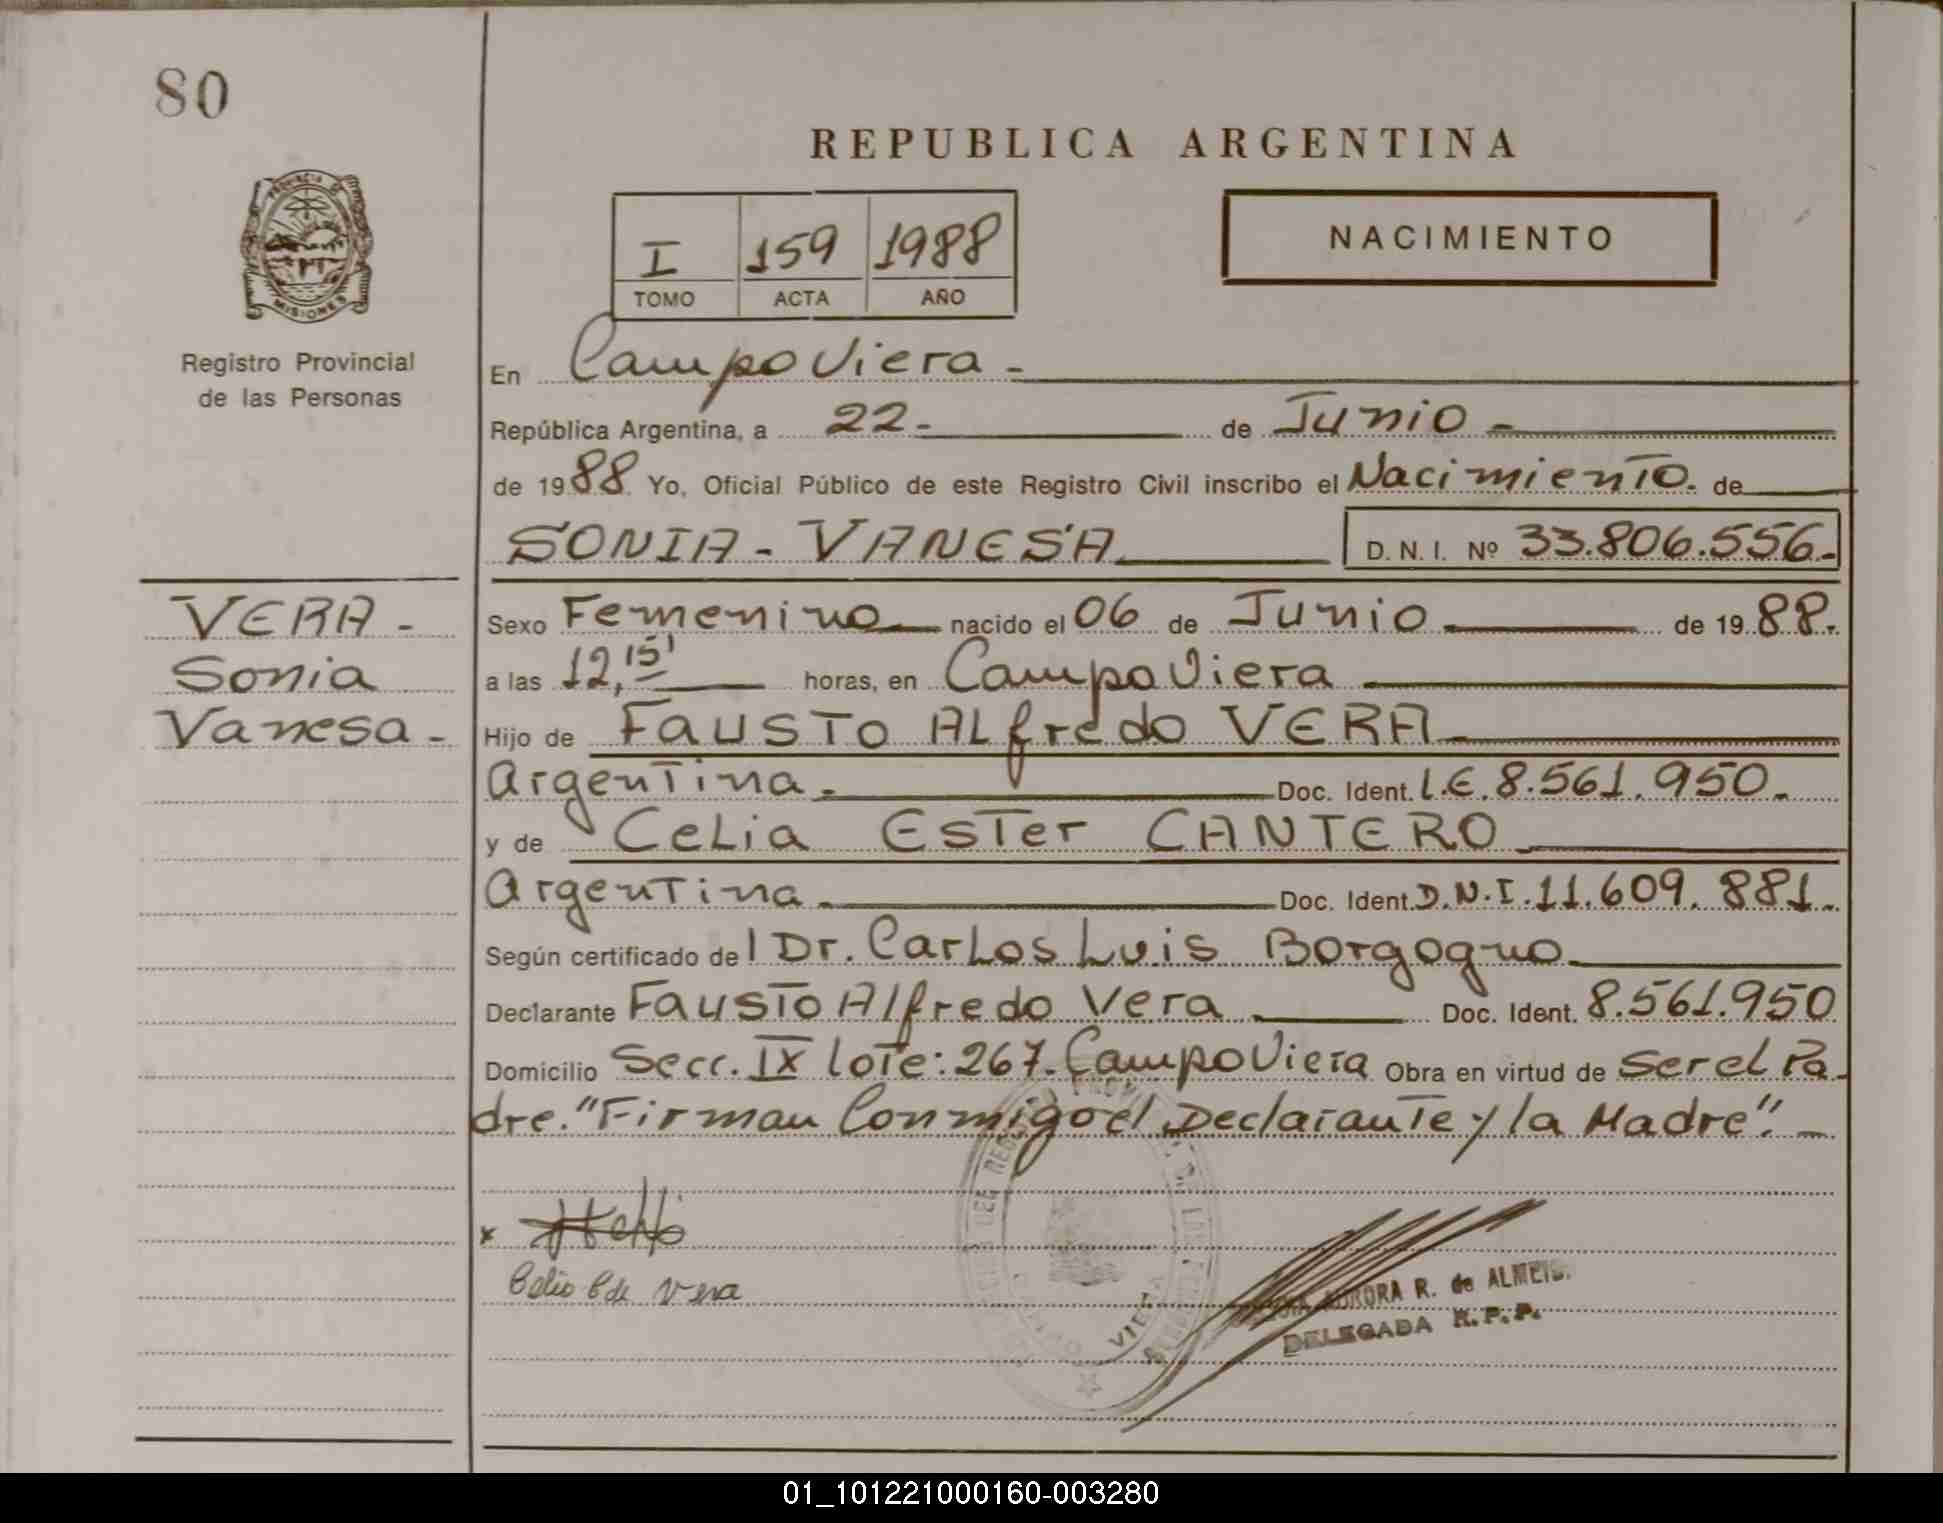 80
REPUBLICA ARGENTINA
PROVINCIA DE
MISIONES
Registro Provincial
de las Personas
I 159 1988
TOMO ACTA AÑO
NACIMIENTO
En Campo Viera -
República Argentina, a 22 - de Junio -
de 1988 Yo, Oficial Público de este Registro Civil inscribo el Nacimiento. de
SONIA - VANESA D. N. I. Nº 33.806.556.-
VERA -
Sonia
Vanesa -
Sexo Femenino nacido el 06 de Junio de 1988.
a las 12,15' horas, en Campo Viera
Hijo de Fausto Alfredo VERA
Argentina. Doc. Ident. L.E. 8.561.950.
y de Celia Ester CANTERO
Argentina Doc. Ident. D.N.I. 11.609.881.
Según certificado del Dr. Carlos Luis Borgogno
Declarante Fausto Alfredo Vera Doc. Ident. 8.561.950
Domicilio Secc. IX lote: 267. Campo Viera Obra en virtud de Ser el Pa-
dre. "Firman Conmigo el Declarante y la Madre". -
x
Celia C de Vera
VIERA
AURORA R. de ALMEID
DELEGADA R.P.P.
01_101221000160-003280